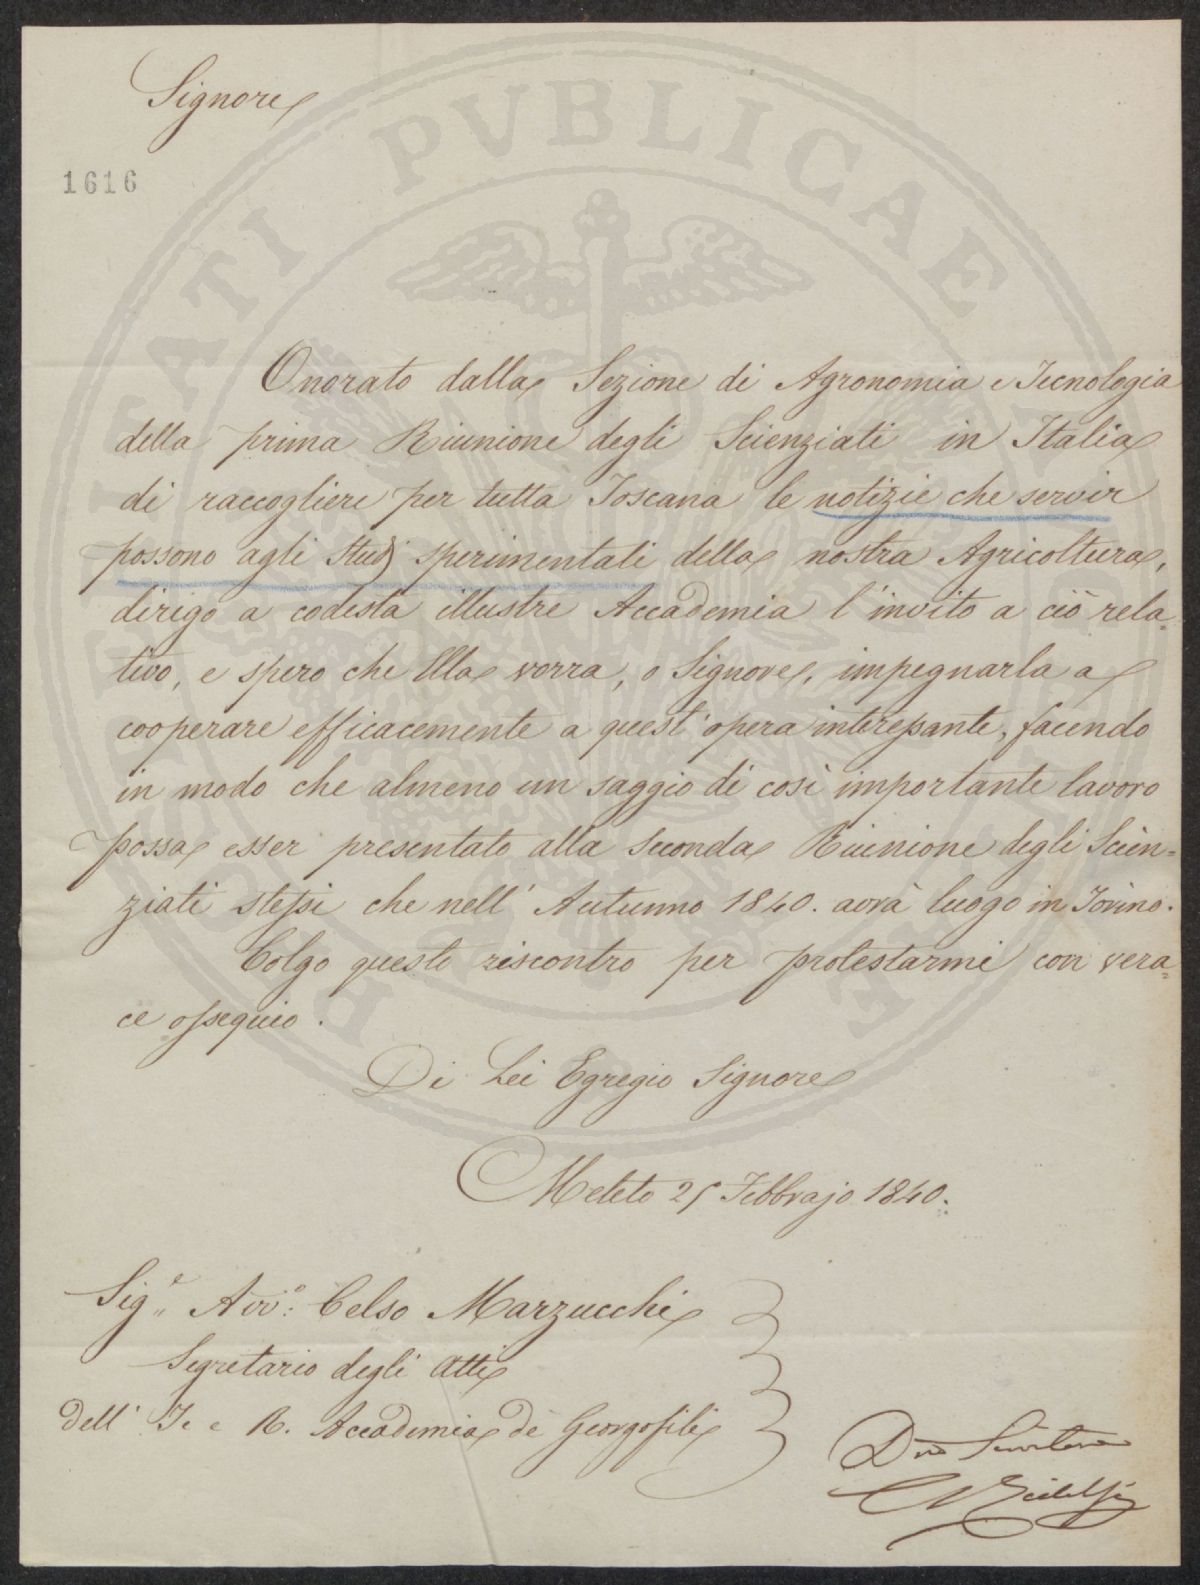 Signore
1616
Onorato dalla Sezione di Agronomia e Tecnologia
della prima Riunione degli Scienziati in Italia
di raccogliere per tutta Toscana le notizie che servir
possono agli Studj sperimentali della nostra Agricoltura,
dirigo a codesta illustre Accademia l'invito a ciò rela=
tivo, e spero che Ella vorra, o Signore, impegnarla a
cooperare efficacemente a quest'opera interessante, facendo
in modo che almeno un saggio di così importante lavoro
possa esser presentato alla seconda Riunione degli Scien=
ziati stessi che nell'Autunno 1840. avrà luogo in Torino.
Colgo questo riscontro per protestarmi con vera=
ce ossequio.
Di Lei Egregio Signore
Meleto 25 Febbrajo 1840.
Sig.e Avv.o: Celso Marzucchi
Segretario degli Atti
dell'I. e R. Accademia de Georgofili
Dvo Servitore
C Ridolfi
PVBLICAE